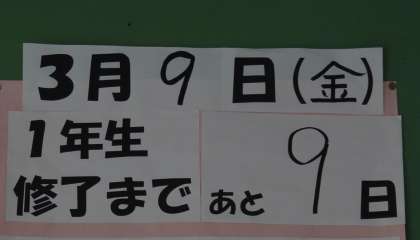 3月9日(金)
1年生
修了まで あと9日